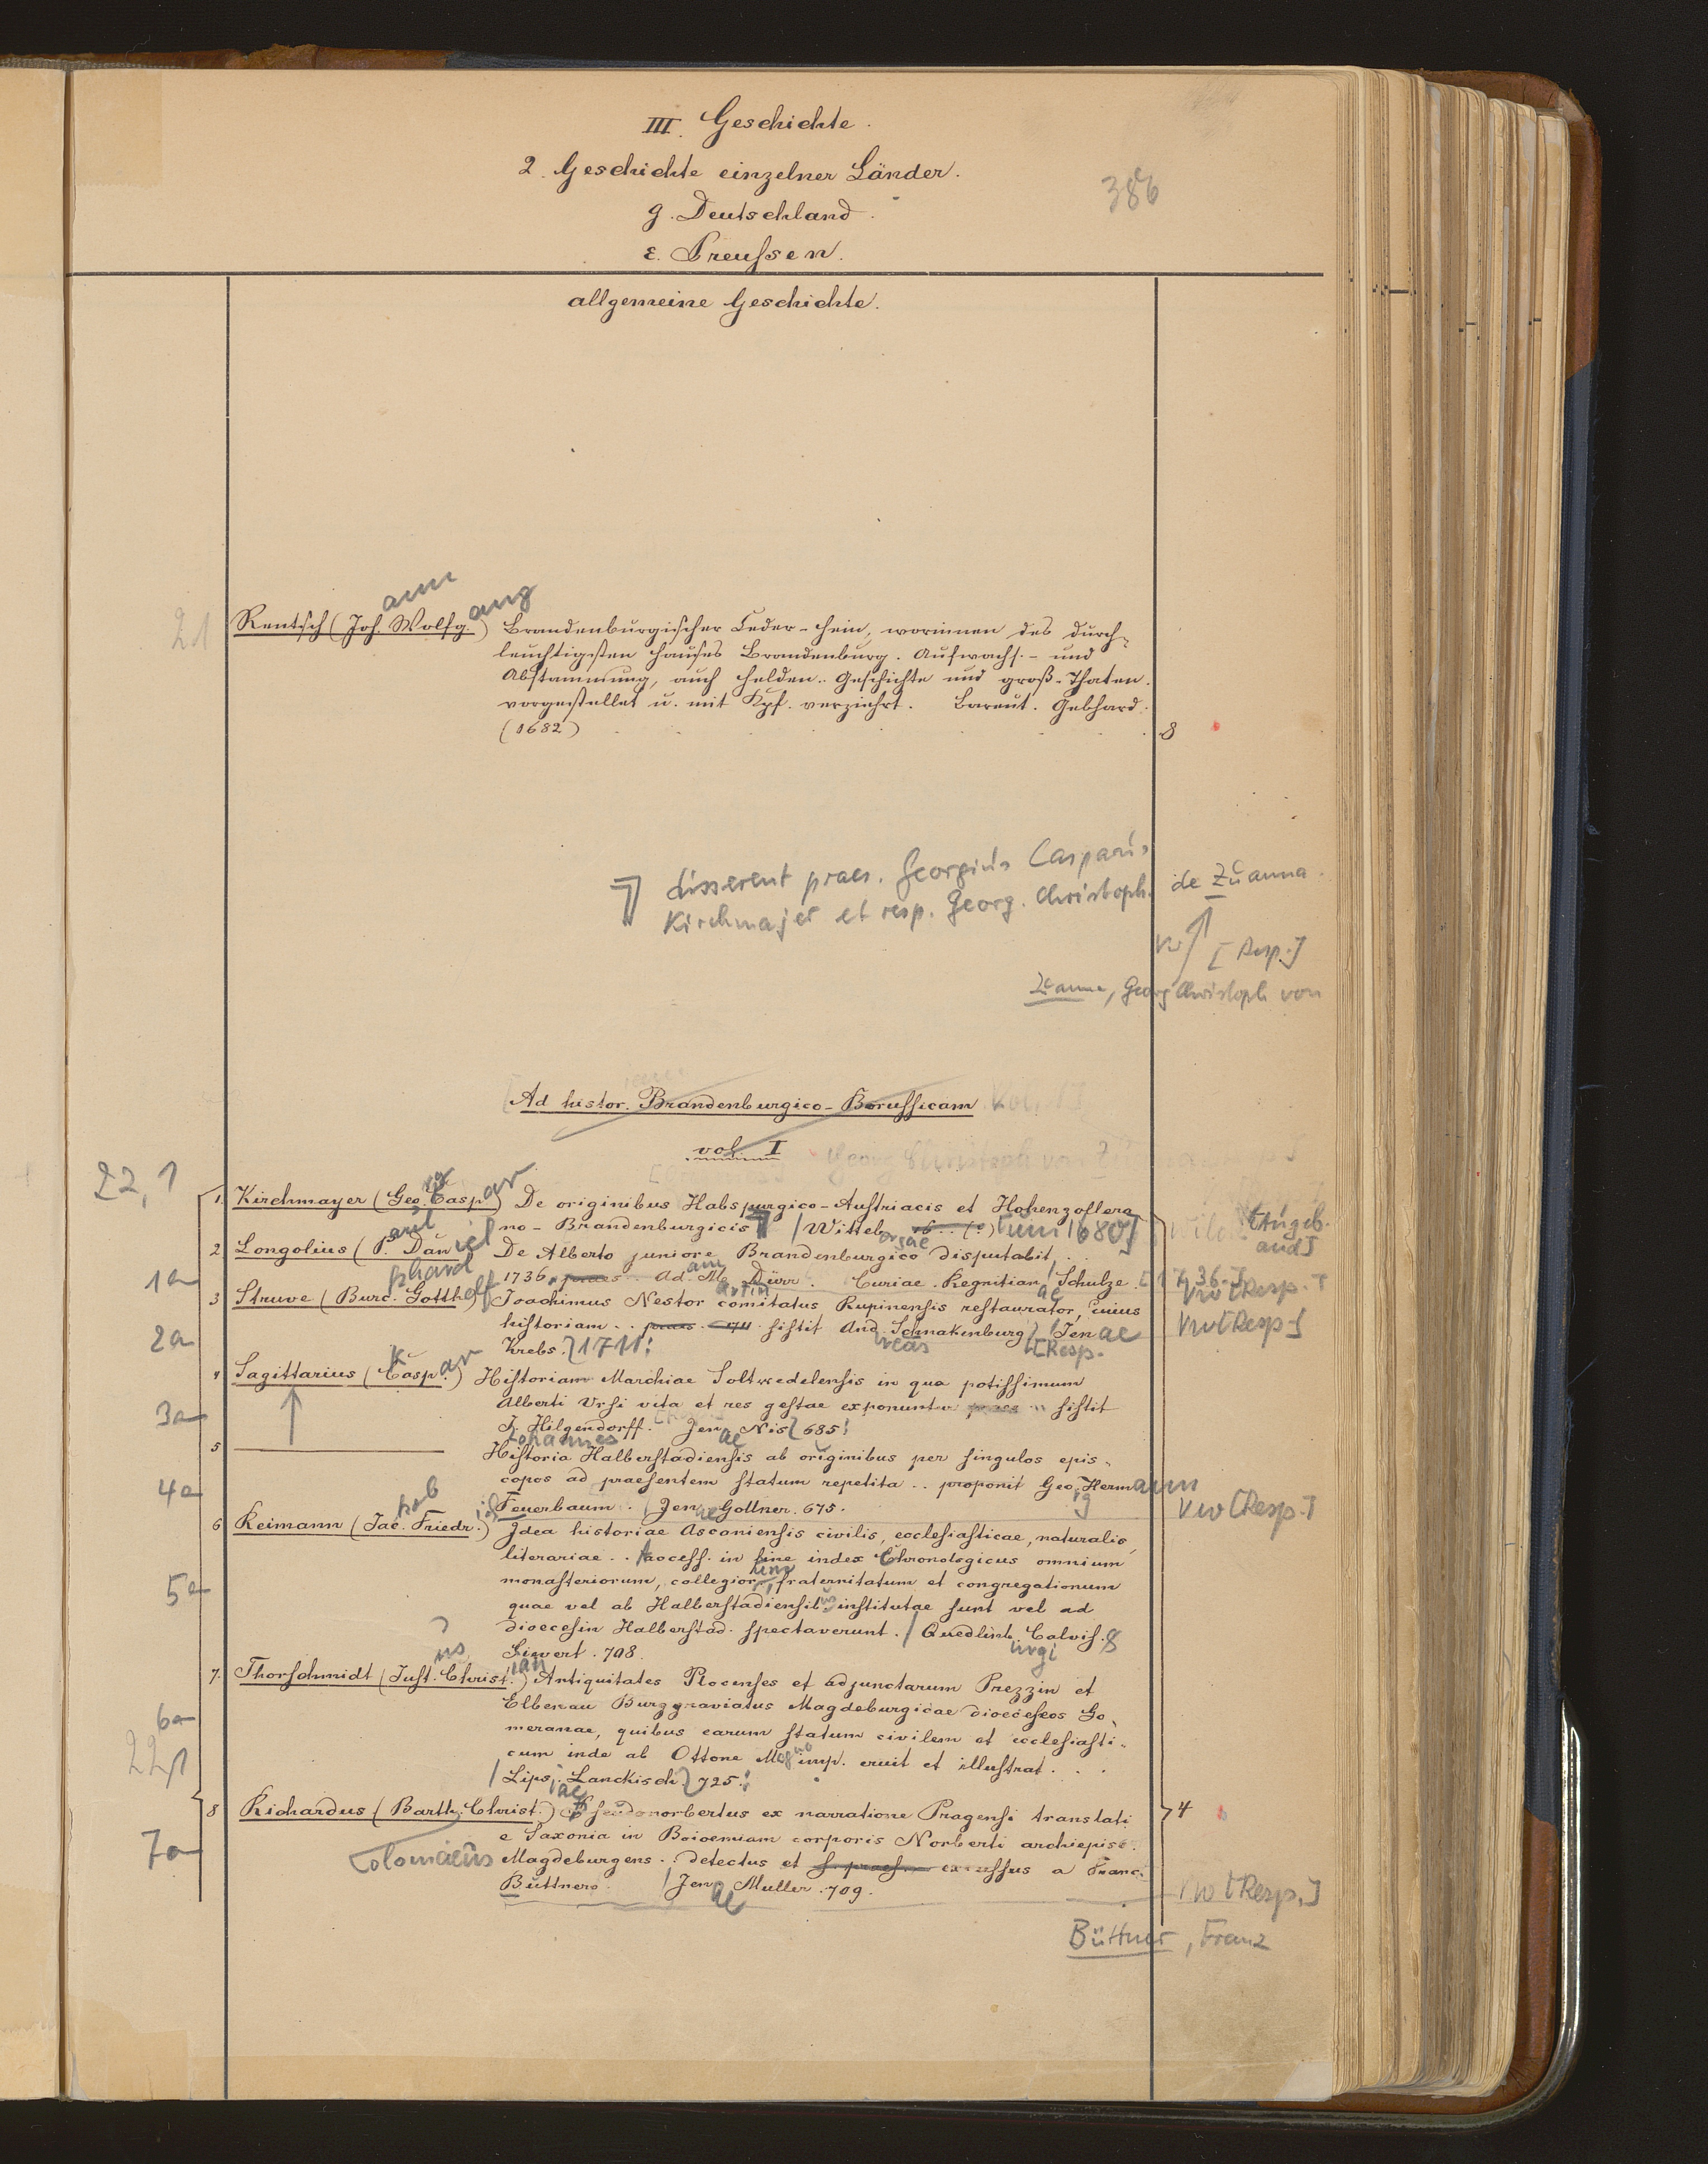 III. Geschichte.
2. Geschichte einzelner Länder.
386
g. Deutschland.
ε. Preussen.
allgemeine Geschichte.
ann
ang
21
Rentsch (Joh. Wolfg.) Brandenburgischer Ceder-Hein, worinnen des durch-
leuchtigsten Hauses Brandenburg. Aufwachs- und
Abstammung, auch Helden-Geschichte und groß-Thaten
vorgestellet u. mit Kpf. verziehrt. Bareut. Gebhard
(1682) 8
disserent praes. Georgius Casparus
Kirchmajer et resp. Georg. Christoph. de Zuanna.
Vw [Resp.]
Zuanna, Georg Christoph von
Ad histor. Brandenburgico-Borussicam
vol. I
22,1
1. Kirchmayer (Geo. Casp.) De originibus Habspurgico-Austriacis et Hohenzollera
ar
no-Brandenburgicis / Witteb. [um 1680]
[Angeb.
and]
2 Longolius (P. Dan.) De Alberto juniore Brandenburgico disputabit
aul
iel
orgae
1a
1736. praes. Ad. M. Dürr. Curiae Regnitian. / Schulze. [1736.]
am
artin
ae
Vw [Resp.]
3 Struve (Burc. Gotth.) Joachimus Nestor comitatus Rupinensis restaurator, cuius
khard
elf
historiam .. praes. sistit And. Schnakenburg / Jen
reas
[Resp.
ae
Vw [Resp.]
2a
Krebs. 1711.
4 Sagittarius (Casp.) Historiam Marchiae Soltwedelensis in qua potissimum
K
ar
Alberti Ursi vita et res gestae exponuntur praes .. sistit
3a
J. Hilgendorff. Jen. Nis 685.
ohannes
ae
5 — Historia Halberstadiensis ab originibus per singulos epis-
copos ad praesentem statum repetita .. proponit Geo. Herm
ann
4a
Feuerbaum. / Jen. Gollner. 675.
ae
g
Vw [Resp.]
6 Reimann (Jac. Friedr.) Idea historiae Ascaniensis civilis, ecclesiasticae, naturalis,
kob
literariae .. Access. in fine index Chronologicus omnium
monasteriorum, collegior., fraternitatum et congregationum
um
5a
quae vel ab Halberstadiensib. institutae sunt vel ad
us
dioecesin Halberstad. spectaverunt. / Quedlinb. Calvis. 8
urgi
Siwert. 708.
7. Thorschmidt (Just. Christ.) Antiquitates Plocenses et adjunctarum Prezzin et
us
ian
Elbenau Burggraviatus Magdeburgicae dioeceseos Go-
6a
meranae, quibus earum statum civilem et ecclesiasti-
cum inde ab Ottone Magno imp. eruit et illustrat . . .
22,1
/ Lips. Lanckisch 725.
iae
8 Richardus (Barth. Christ.) Pseudonorbertus ex narratione Pragensi translati 4
e Saxonia in Boioemiam corporis Norberti archiepisc.
7a
olomaeus Magdeburgens .. detectus et s. praes. excussus a Franc.
Büttnero. / Jen. Muller. 709.
ae
Vw [Resp.]
Büttner, Franz